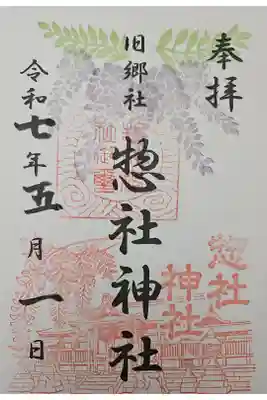 奉拝
旧郷社
惣社神社
令和七年五月一日
惣社
神社